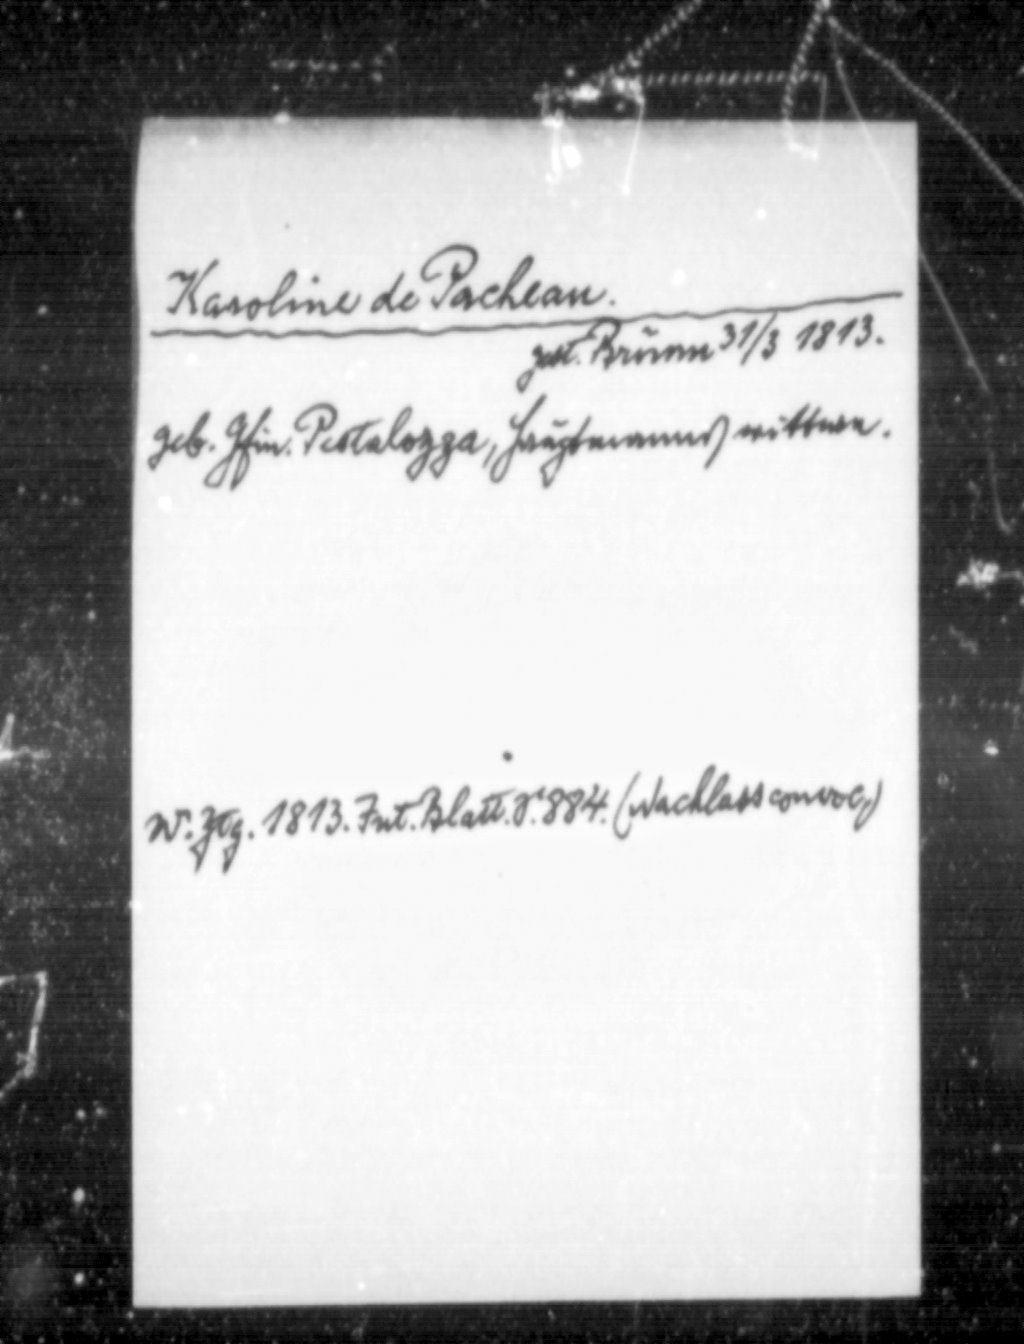 Karoline de Pacheau.
gest. Brünn 31/3 1813.
geb. Gfin. Pestalozza, Hauptmanns wittwe.
W. Ztg. 1813. Int. Blatt. S. 884. (Nachlassconvoc.)